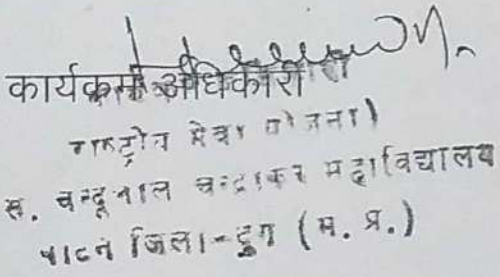 कार्यक्रम अधिकारी
राष्ट्रीय सेवा योजना
स. चन्दूलाल चन्द्राकर महाविद्यालय
पाटन जिला-दुर्ग (म. प्र.)